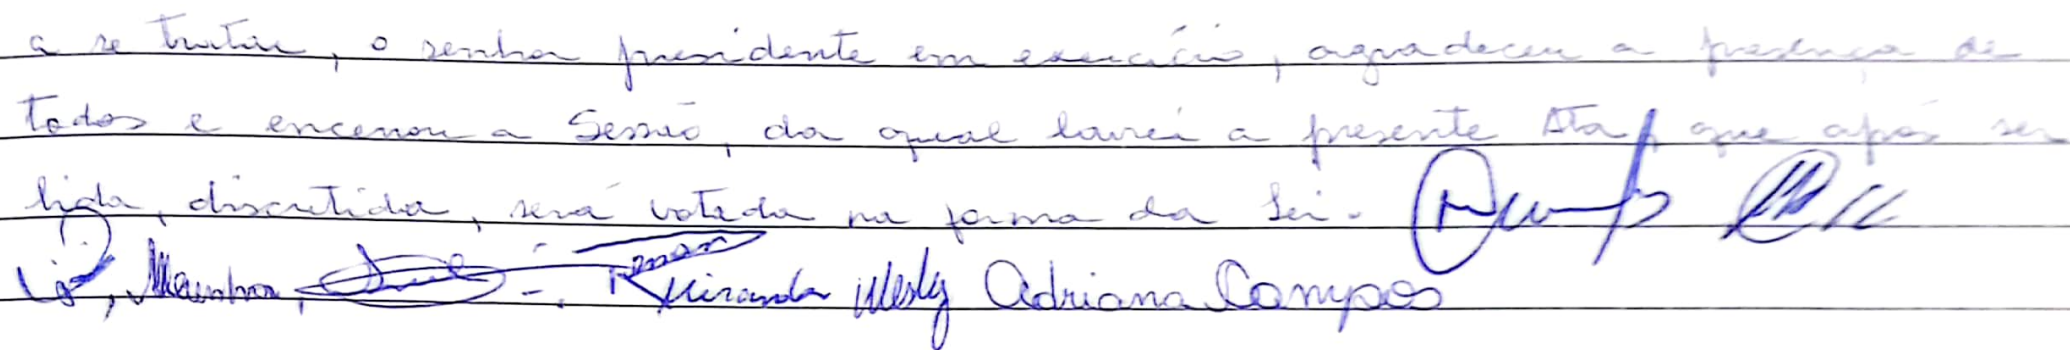 a se tratar, o senhor presidente em exercício, agradeceu a presença de
todos e encerrou a Sessão, da qual lavrei a presente Ata, que após ser
lida, discutida, será votada na forma da Lei.
Miranda Wesley Adriana Campos